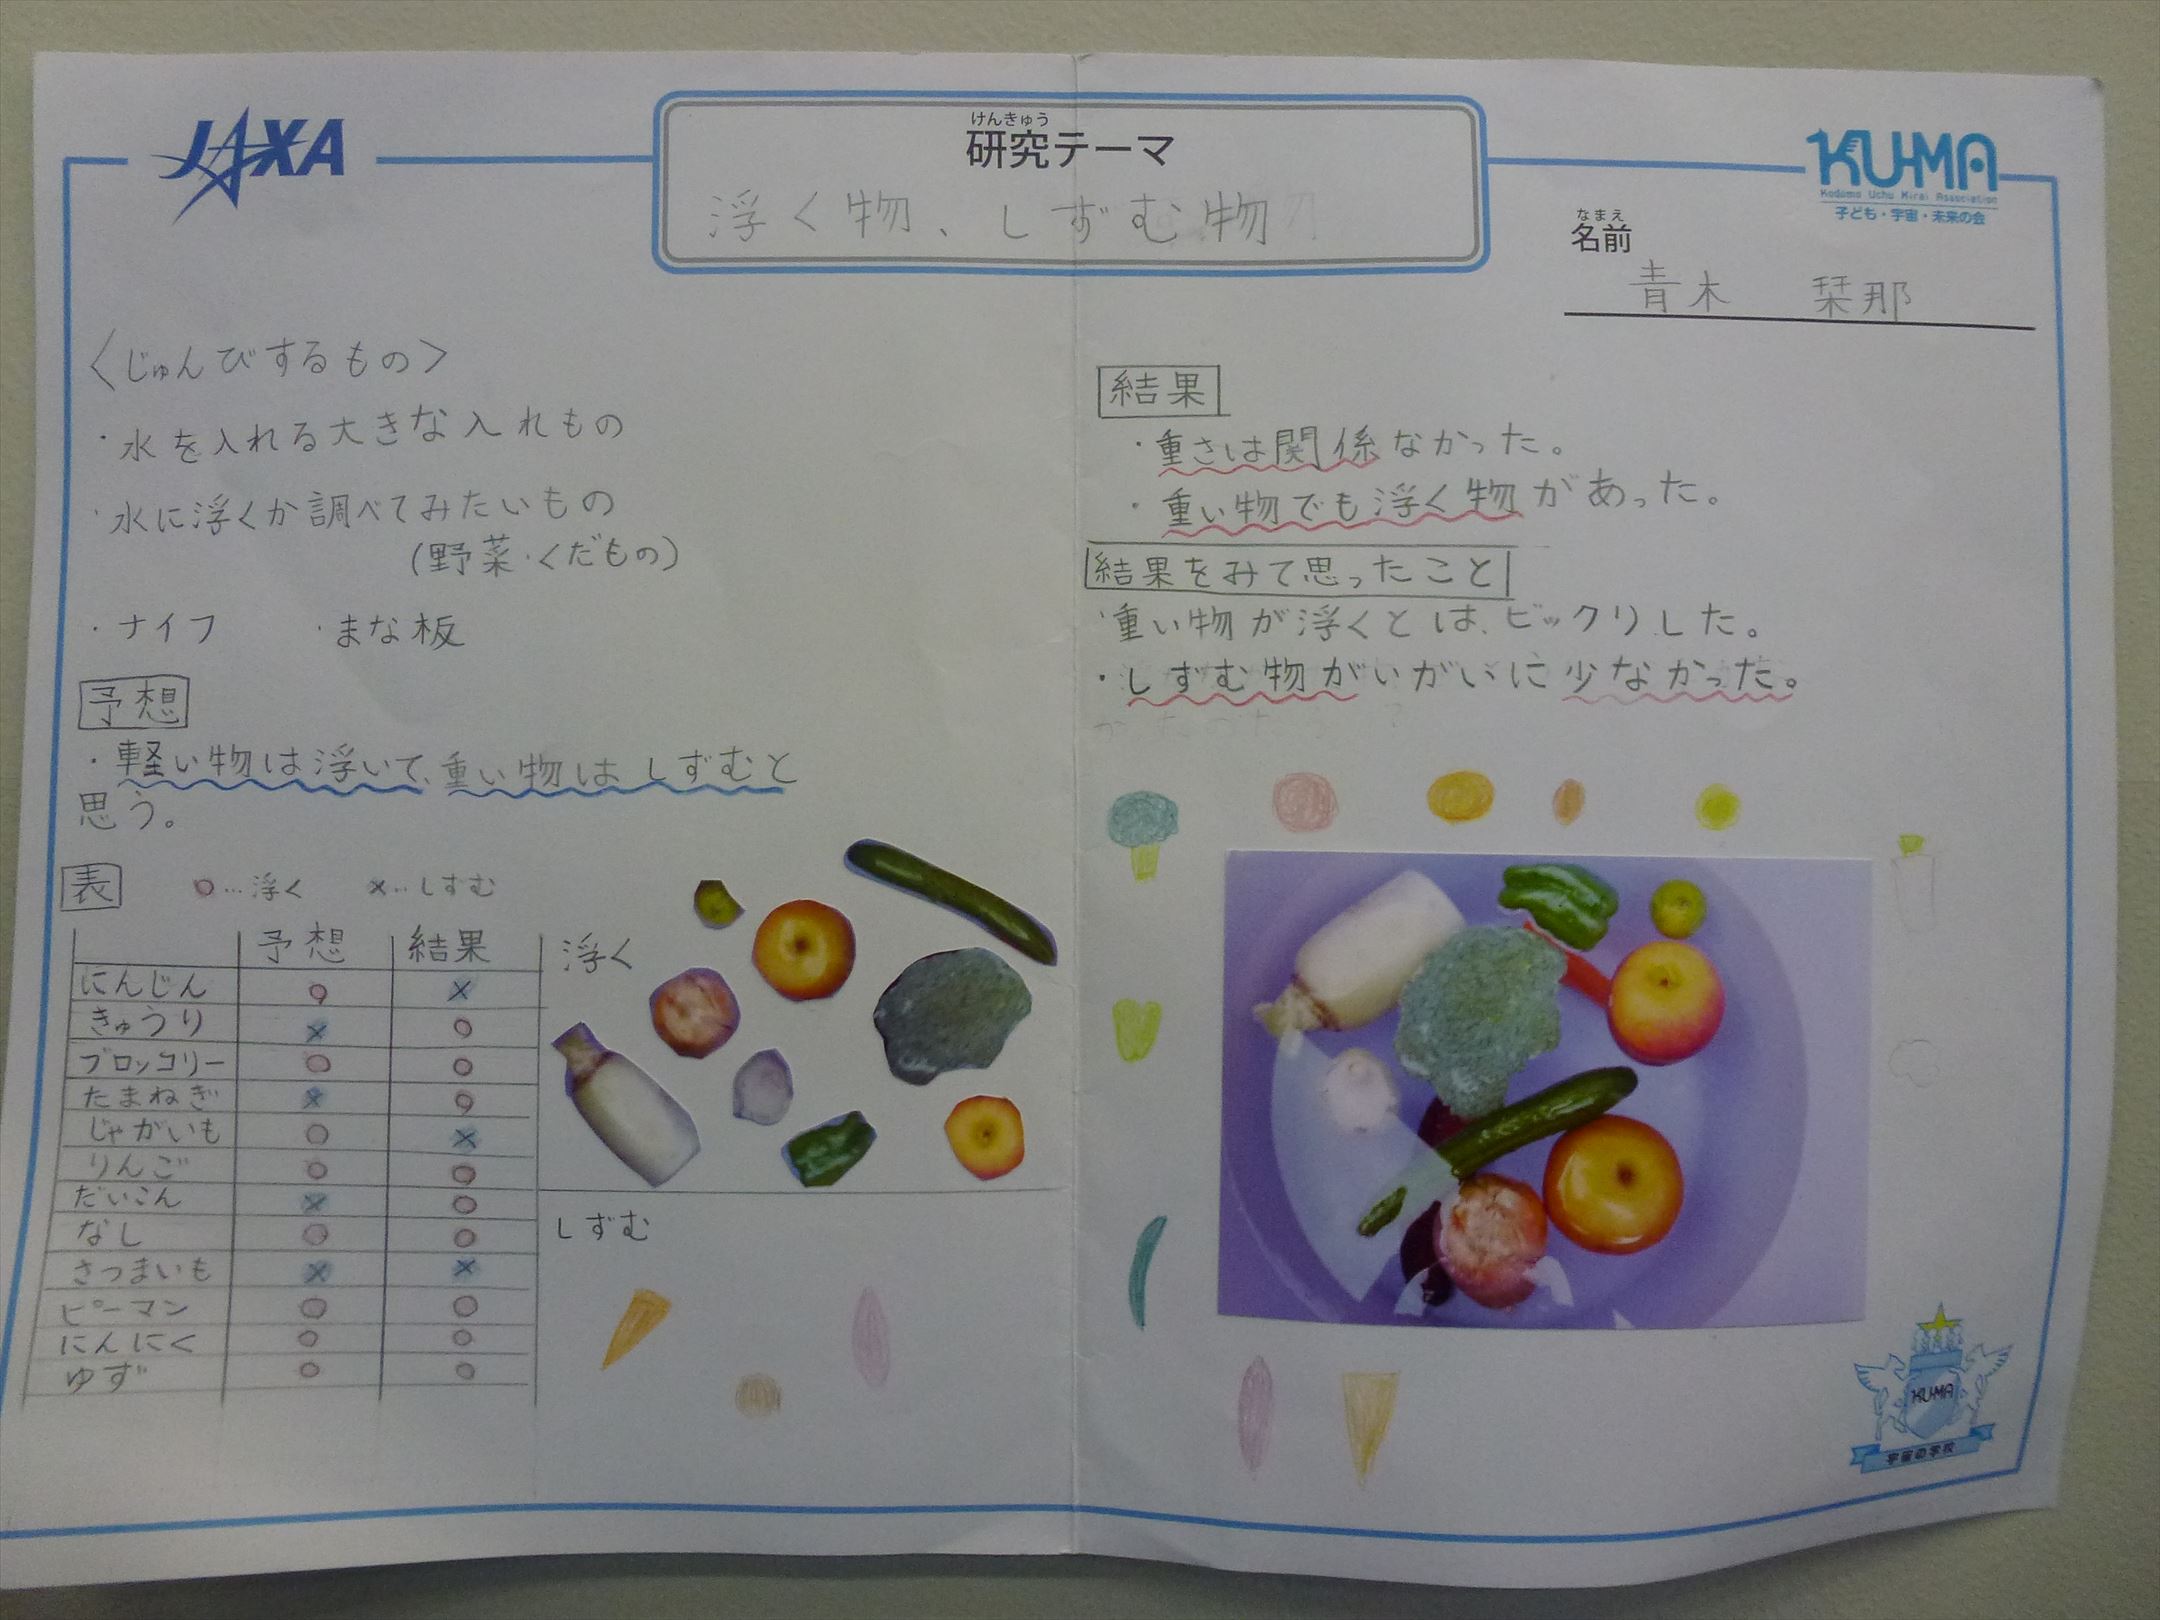 JAXA
けんきゅう
研究テーマ
浮く物、しずむ物
KU-MA
Kodomo Uchu Mirai Association
子ども・宇宙・未来の会
なまえ
名前
青木 栞那
〈じゅんびするもの〉
・水を入れる大きな入れもの
・水に浮くか調べてみたいもの
(野菜・くだもの)
・ナイフ ・まな板
予想
・軽い物は浮いて、重い物はしずむと
思う。
表 ○…浮く ×…しずむ
予想 結果
にんじん ○ ×
きゅうり × ○
ブロッコリー ○ ○
たまねぎ × ○
じゃがいも ○ ×
りんご ○ ○
だいこん × ○
なし ○ ○
さつまいも × ×
ピーマン ○ ○
にんにく ○ ○
ゆず ○ ○
浮く
しずむ
結果
・重さは関係なかった。
・重い物でも浮く物があった。
結果をみて思ったこと
・重い物が浮くとは、ビックリした。
・しずむ物がいがいに少なかった。
KU-MA
宇宙の学校